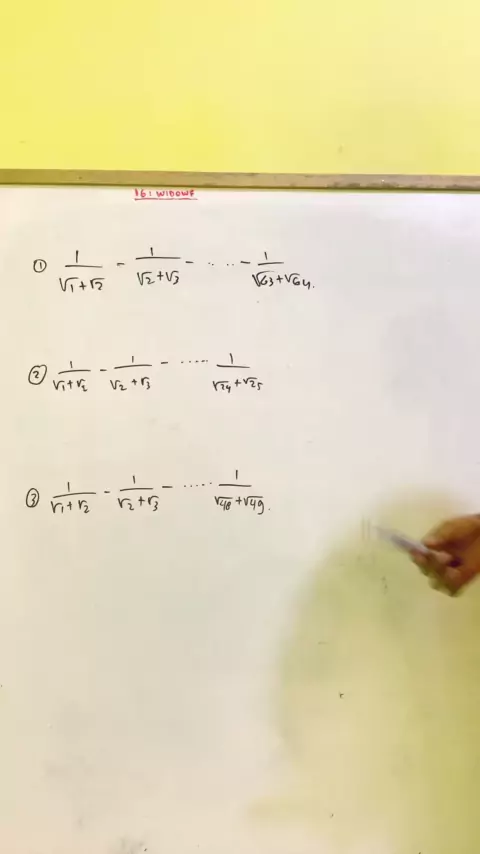 16: WIDOWF
① 1/(√1+√2) - 1/(√2+√3) - ..... - 1/(√63+√64.)
② 1/(√1+√2) - 1/(√2+√3) - ..... 1/(√24+√25)
③ 1/(√1+√2) - 1/(√2+√3) - ..... 1/(√48+√49.)